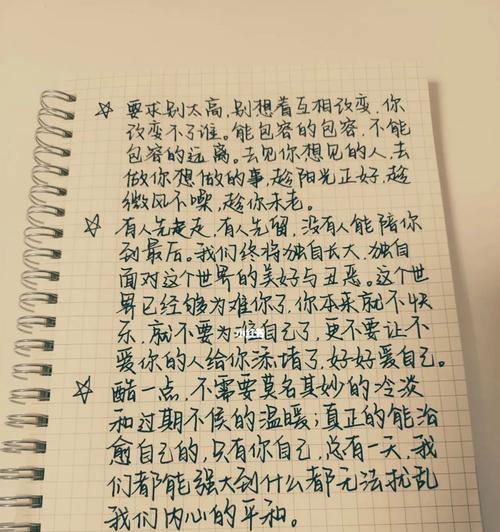 ☆ 要求别太高，别想着互相改变，你
改变不了谁。能包容的包容，不能
包容的远离。去见你想见的人，去
做你想做的事，趁阳光正好，趁
微风不噪，趁你未老。
☆ 有人先走，有人先留，没有人能陪你
到最后。我们终将独自长大，独自
面对这个世界的美好与丑恶。这个世
界已经够为难你了，你本来就不快
乐，就不要为难自己了，更不要让不
爱你的人给你添堵了，好好爱自己。
☆ 酷一点，不需要莫名其妙的冷淡
和过期不候的温暖；真正的能治
愈自己的，只有你自己，总有一天，我
们都能强大到什么都无法扰乱
我们内心的平和。